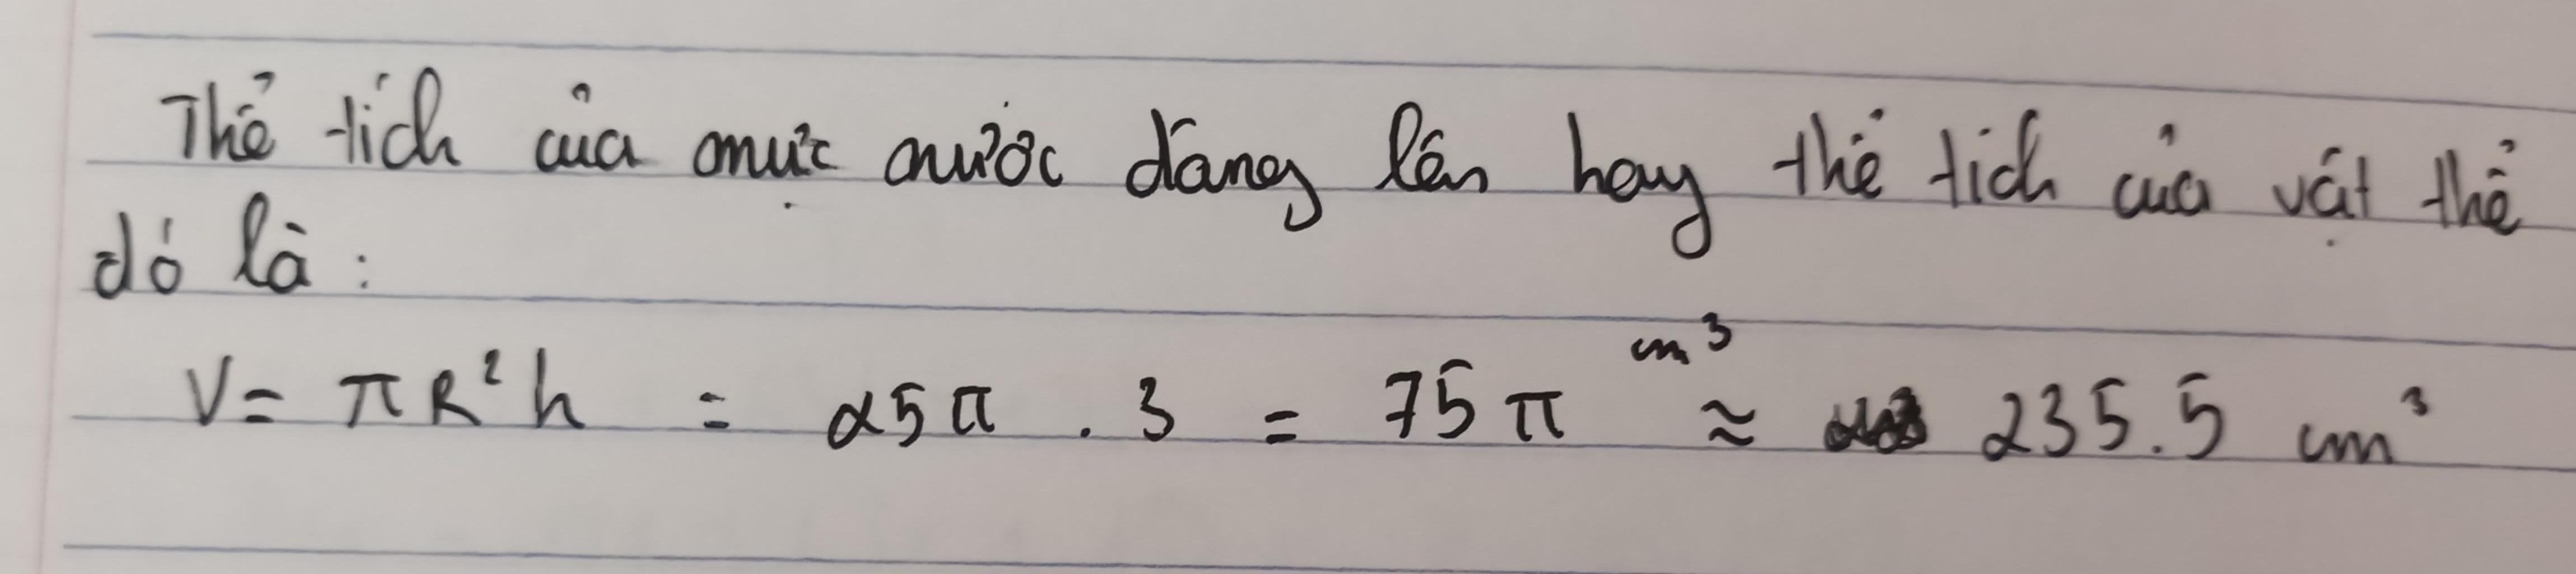 Thể tích của mực nước dâng lên hay thể tích của vật thể
đó là :
V = πR²h = 25π . 3 = 75π cm³ ≈ 235.5 cm³